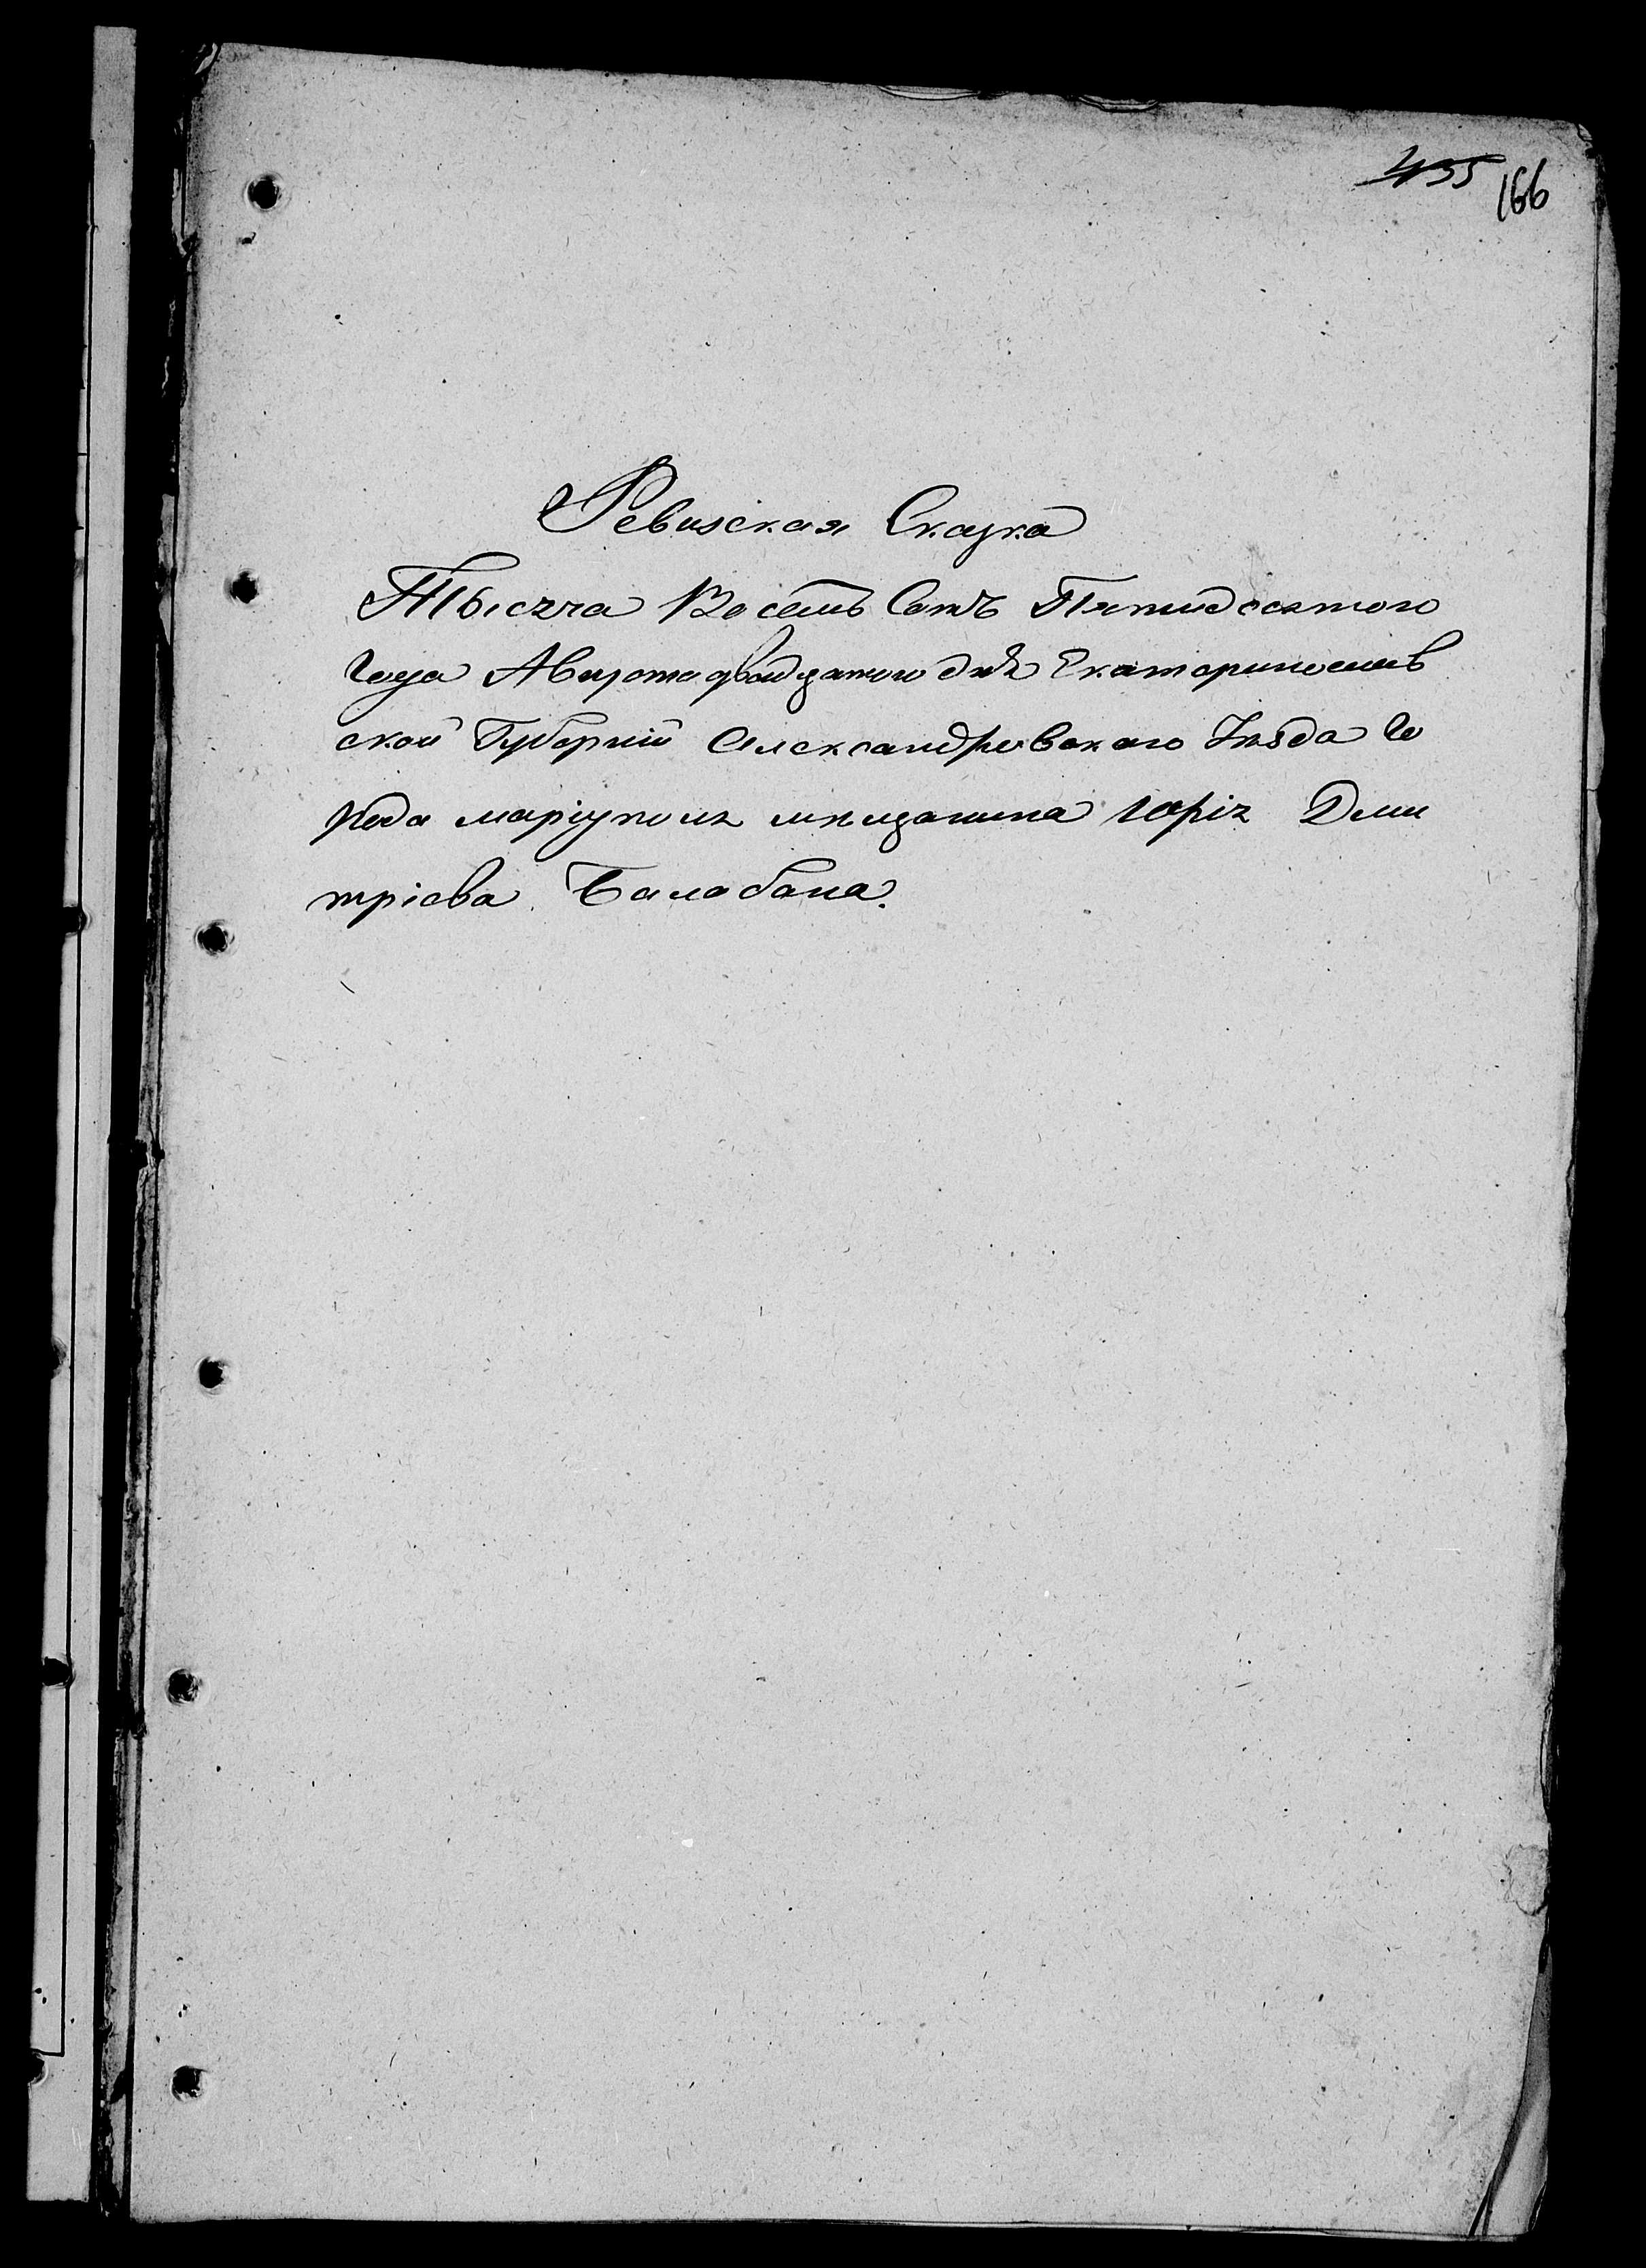 455 166
Ревизская Сказка
Тысяча Восемь Сотъ Пятидесятого
Года Августа двадцатого дня Екатеринослав
ской Губерніи Александровскаго Уѣзда Го
рода маріуполя мѣщанина Юрія Дми
тріева Балабана.